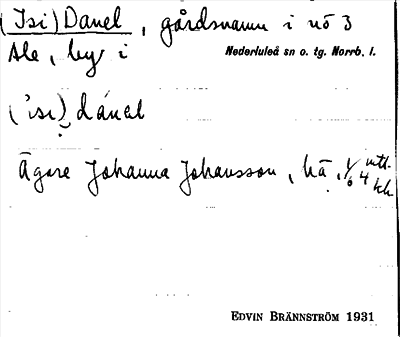 (Isi) Danel, gårdsnamn i nö 3
Ale, by i Nederluleå sn o. tg. Norrb. l.
('isi) dánel
Ägare Johanna Johansson, hä, 1/6 4
EDVIN BRÄNNSTRÖM 1931